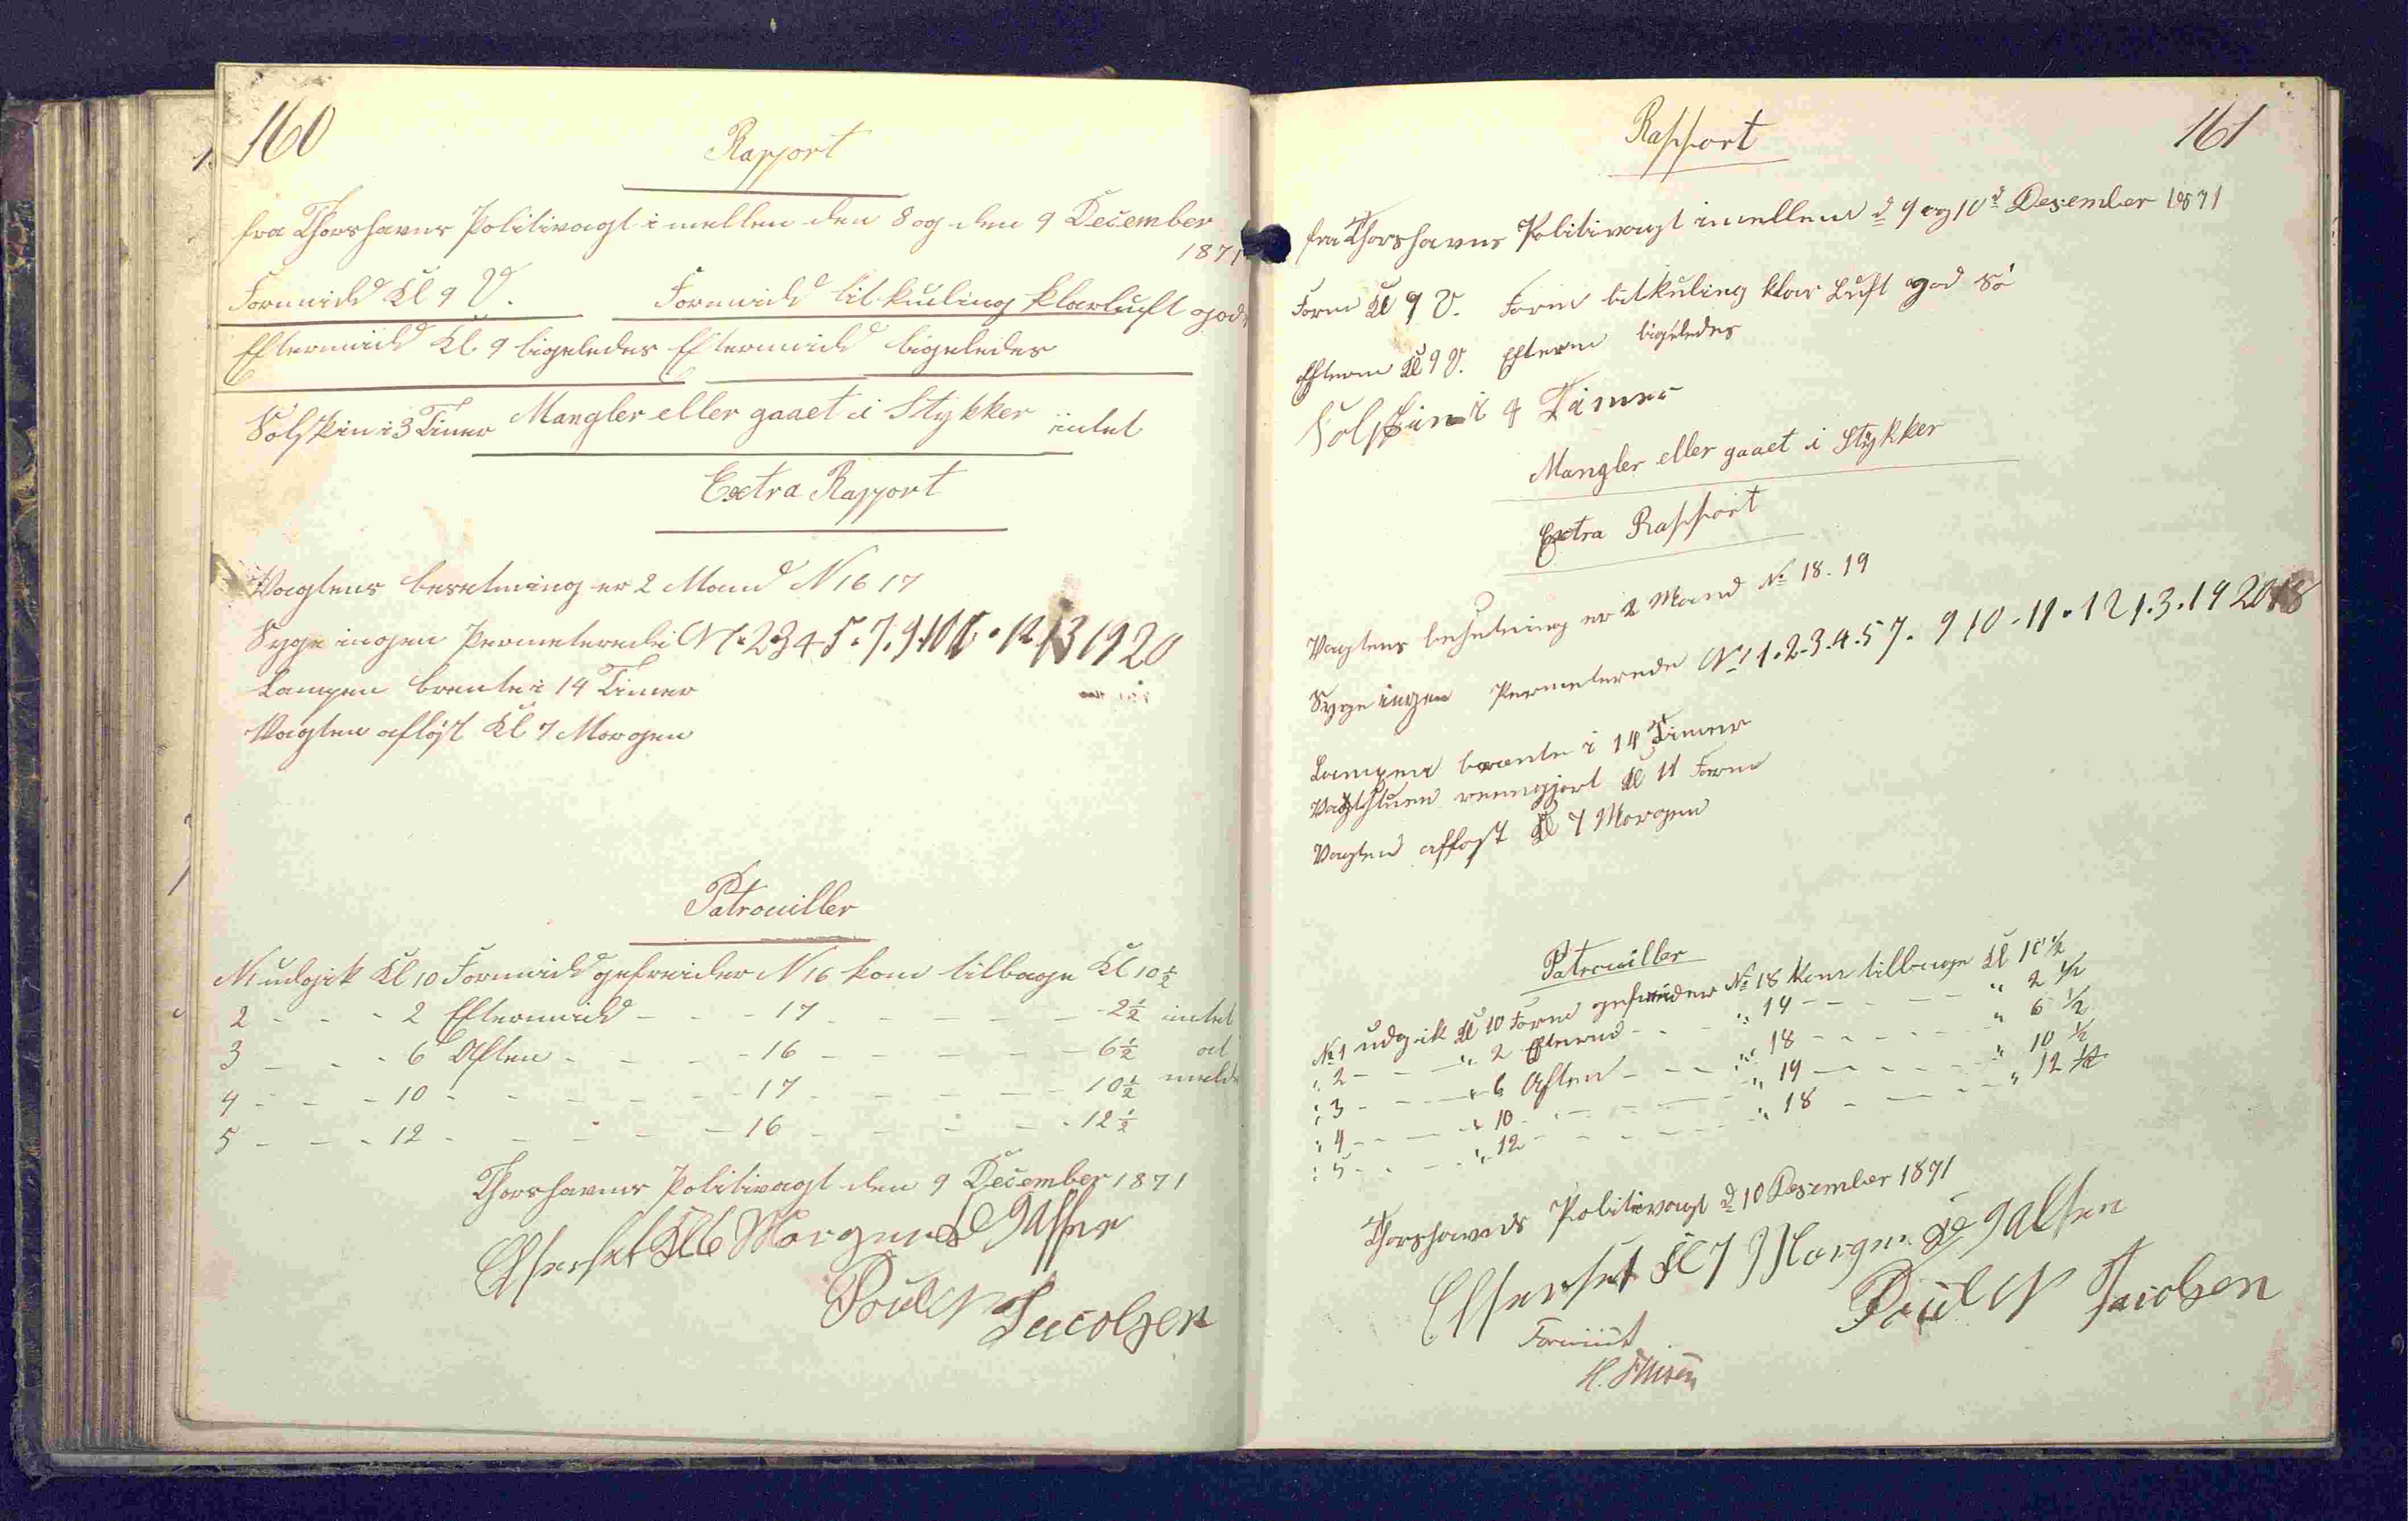 160
Rapport
fra Thorshavns Politivagt imellen den 8 og den 9 December
1871
Formidd Kl 9 V. Formidd litkuling klarluft god
Eftermidd Kl. 9 ligeledes Eftermidd ligeledes
Solskin i 3 Timer Mangler eller gaaet i Stykker intet
Extra Rapport
Vagtens besetning er 2 Mand N 16 17
Syge ingen Permeterede N 1 2 3 4 5 7. 9 10 11 12 13 19 20
Lampen brente i 14 Timer
Vagten afløst Kl 7 Morgen
Patrouiller
N 1 udgik Kl 10 Formidd gefreider N 16 kom tilbage Kl 10 ½
2 - - - 2 Eftermidd - - - 17 - - - - - 2 ½ intet
3 - - - 6 Aften - - - 16 - - - - - 6 ½ at
4 - - - 10 - - - - - 17 - - - - - 10 ½ melde
5 - - - 12 - - - - - 16 - - - - - 12 ½
Thorshavns Politivagt den 9 December 1871
Efterset Kl 6 Morgen
Poul N Jacobsen
161
Rapport
fra Thorshavns Politivagt imellem d 9 og 10 d Desember 1871
Form Kl 9 V. Form litkuling klar Luft god Sö
Efterm Kl 9 V. Efterm ligeledes
Solskin i 4 Timer
Mangler eller gaaet i Stykker
Extra Rapport
Vagtens besetning er 2 Mand No 18. 19
Syge ingen Permeterede No 1. 2. 3. 4. 5 7. 9 10. 11. 12 13. 19 20 18
Lampen brente i 14 Timer
Vagtstuen rengjort Kl 11 Form
Vagten afløst Kl 7 Morgen
Patrouiller
No 1 udgik Kl 10 Form gefreider No 18 kom tilbage Kl 10 ½
" 2 - - - " 2 Efterm - - - " 19 - - - - - " 2 ½
" 3 - - - " 6 Aften - - - " 18 - - - - - " 6 ½
" 4 - - - " 10 - - - - - " 19 - - - - - " 10 ½
" 5 - - - " 12 - - - - - " 18 - - - - - " 12 ½
Thorshavns Politivagt d 10 Desember 1871
Efterset Kl 7 Morgen
Poul N Jacobsen
H.